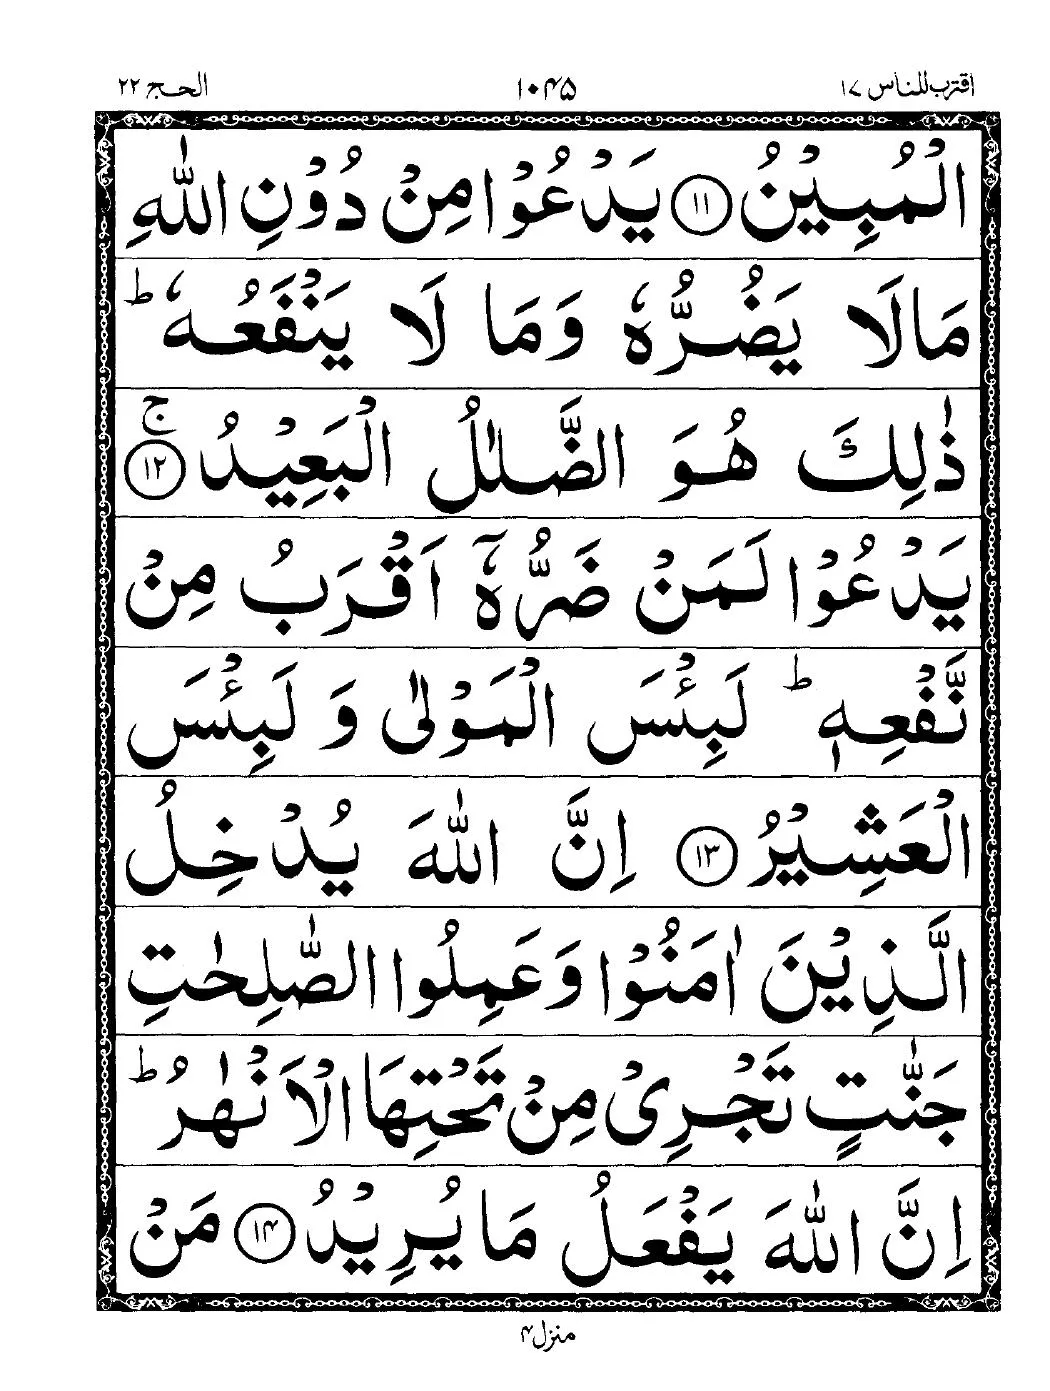 اقترب للناس ۱۷ ۱۰۴۵ الحج ۲۲
الْمُبِيْنُ ۝۱۱ يَدْعُوْا مِنْ دُوْنِ اللّٰهِ
مَالَا يَضُرُّهٗ وَمَا لَا يَنْفَعُهٗ ؕ
ذٰلِكَ هُوَ الضَّلٰلُ الْبَعِيْدُ ۝۱۲ ۚ
يَدْعُوْا لَمَنْ ضَرُّهٗۤ اَقْرَبُ مِنْ
نَّفْعِهٖ ؕ لَبِئْسَ الْمَوْلٰى وَ لَبِئْسَ
الْعَشِيْرُ ۝۱۳ اِنَّ اللّٰهَ يُدْخِلُ
الَّذِيْنَ اٰمَنُوْا وَعَمِلُوا الصّٰلِحٰتِ
جَنّٰتٍ تَجْرِىْ مِنْ تَحْتِهَا الْاَنْهٰرُ ؕ
اِنَّ اللّٰهَ يَفْعَلُ مَا يُرِيْدُ ۝۱۴ مَنْ
منزل ۴